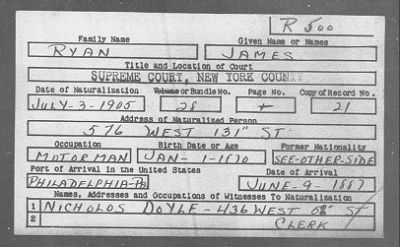 R 500
Family Name Given Name or Names
RYAN JAMES
Title and Location of Court
SUPREME COURT, NEW YORK COUN
Date of Naturalization Volume or Bundle No. Page No. Copy of Record No.
JULY-3-1905 28 21
Address of Naturalized Person
576 WEST 131" ST
Occupation Birth Date or Age Former Nationality
MOTORMAN JAN- 1-1870 SEE-OTHER-SIDE
Port of Arrival in the United States Date of Arrival
PHILADELPHIA-PA JUNE-9-1887
Names, Addresses and Occupations of Witnesses To Naturalization
1 NICHOLOS DOYLE-436 WEST ST
2 CLERK